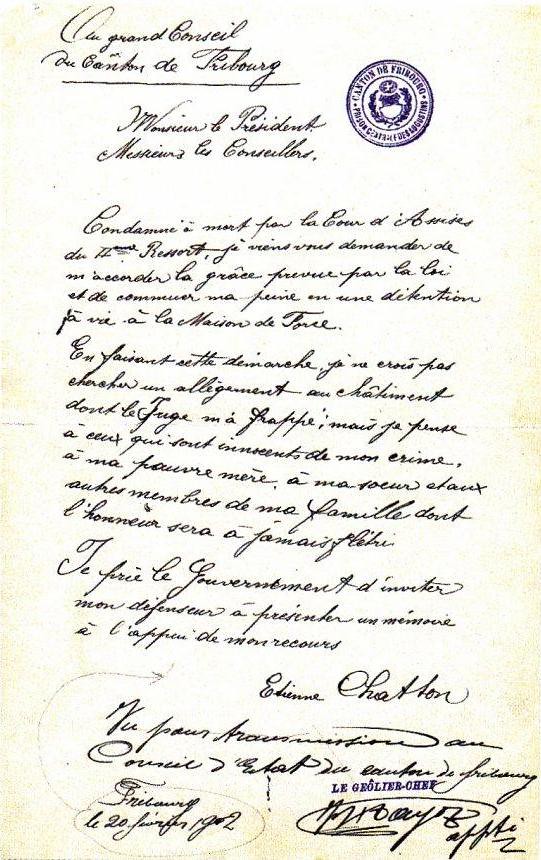 Au grand Conseil
du Canton de Fribourg
CANTON DE FRIBOURG
PRISON CENTRALE DES AUGUSTINS
Monsieur le Président
Messieurs les Conseillers,
Condamné à mort par la Cour d'Assises
du IIème Ressort, je viens vous demander de
m'accorder la grâce prévue par la loi
et de commuer ma peine en une détention
à vie à la Maison de Force.
En faisant cette démarche, je ne crois pas
chercher un allègement au châtiment
dont le Juge m'a frappé; mais je pense
à ceux qui sont innocents de mon crime,
à ma pauvre mère, à ma soeur et aux
autres membres de ma famille dont
l'honneur sera à jamais flétri
Je prie le Gouvernement d'inviter
mon défenseur à présenter un mémoire
à l'appui de mon recours
Etienne Chatton
Vu pour transmission au
Conseil d'Etat du canton de fribourg
LE GEÔLIER-CHEF
Fribourg
le 20 février 1902